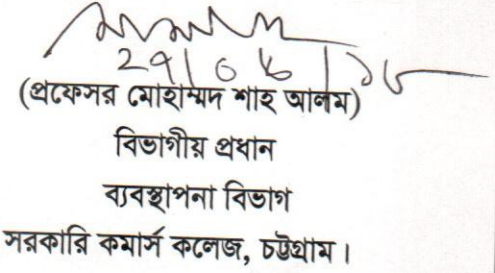 (প্রফেসর মোহাম্মদ শাহ আলম)
বিভাগীয় প্রধান
ব্যবস্থাপনা বিভাগ
সরকারি কমার্স কলেজ, চট্টগ্রাম।